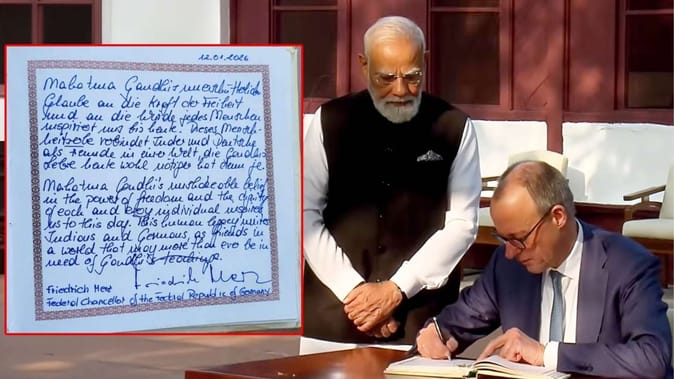 12.01.2026
Mahatma Gandhis unerschütterlicher
Glaube an die Kraft der Freiheit
und an die Würde jedes Menschen
inspiriert uns bis heute. Dieses Mensch-
heitserbe verbindet Inder und Deutsche
als Freunde in einer Welt, die Gandhis
Lehre heute wohl nötiger hat denn je.
Mahatma Gandhi's unshakeable belief
in the power of freedom and the dignity
of each and every individual inspires
us to this day. This human legacy unites
Indians and Germans as friends in
a world that may more than ever be in
need of Gandhi's teachings.
Friedrich Merz
Friedrich Merz
Federal Chancellor of the Federal Republic of Germany